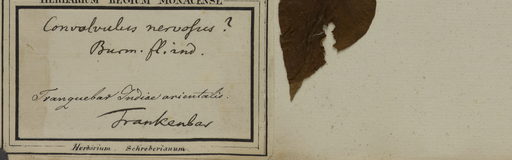 HERBARIUM REGIUM MONACENSE.
Convolvulus nervosus?
Burm. fl. ind.
Tranquebar Indiae orientalis.
Frankenbar
Herbirium Schreberianum